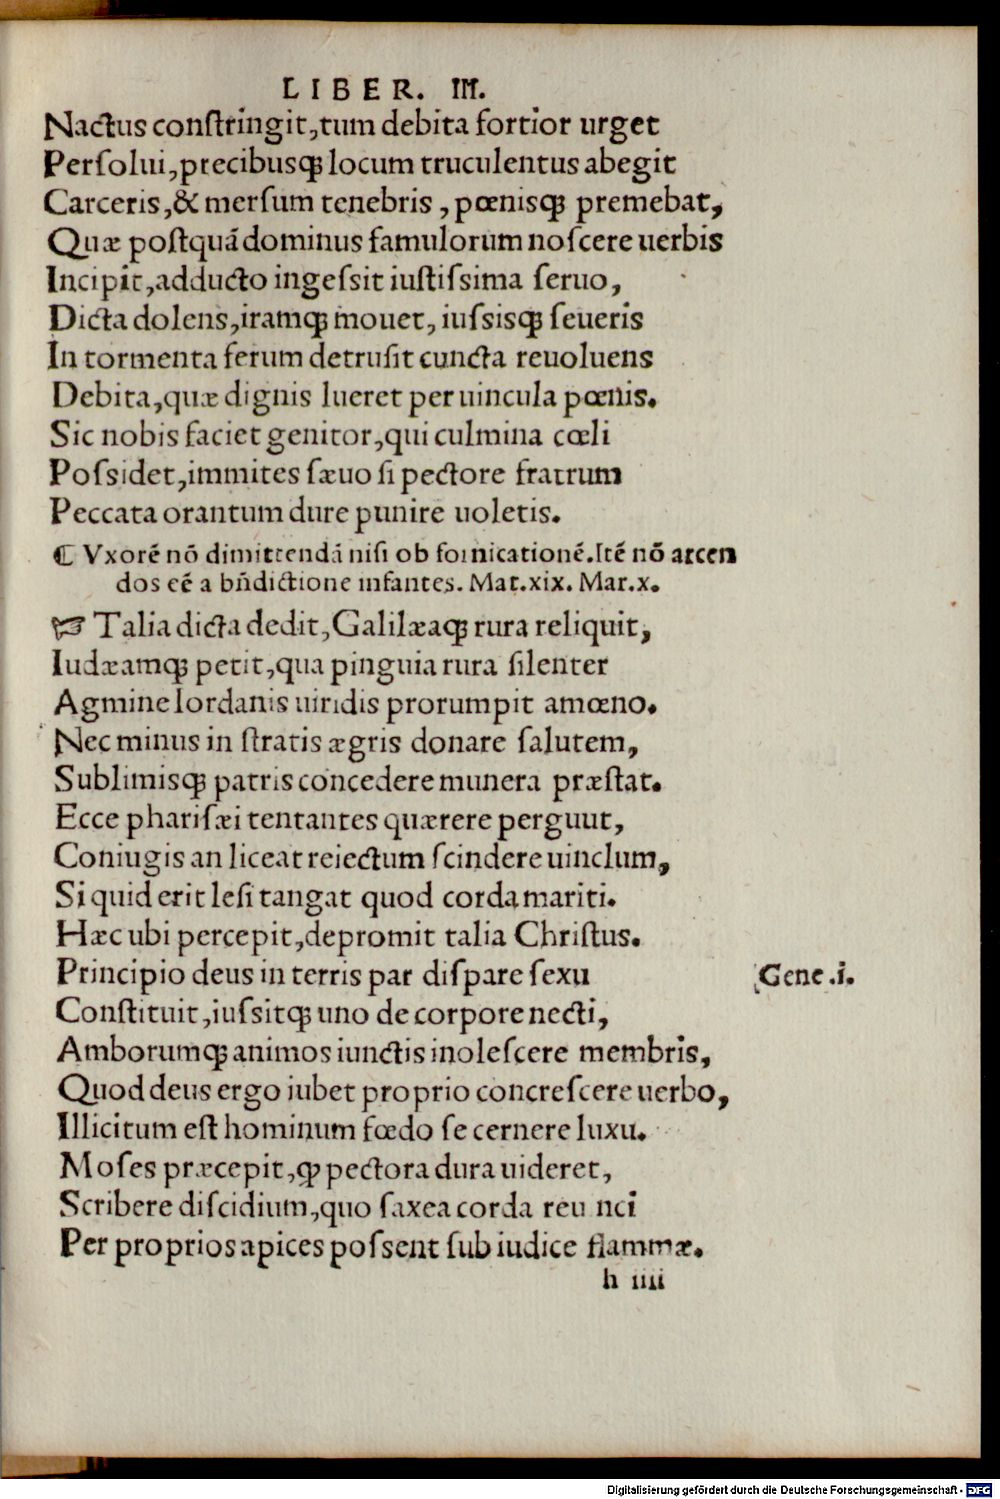 LIBER. III.
Nactus conſtringit,tum debita fortior urget
Perſolui,precibusqꝫ locum truculentus abegit
Carceris,& merſum tenebris , pœnisqꝫ premebat,
Quæ poſtquã dominus famulorum noſcere uerbis
Incipit,adducto ingeſsit iuſtiſsima ſeruo,
Dicta dolens,iramqꝫ mouet, iuſsisqꝫ ſeueris
In tormenta ferum detruſit cuncta reuoluens
Debita,quæ dignis lueret per uincula pœnis.
Sic nobis faciet genitor,qui culmina cœli
Poſsidet,immites ſæuo ſi pectore fratrum
Peccata orantum dure punire uoletis.
¶ Vxorẽ nõ dimittendã niſi ob fornicationẽ.Itẽ nõ arcen
dos eẽ a bñdictione infantes. Mat.xix. Mar.x.
☞ Talia dicta dedit,Galilæaqꝫ rura reliquit,
Iudæamqꝫ petit,qua pinguia rura ſilenter
Agmine Iordanis uiridis prorumpit amœno.
Nec minus in ſtratis ægris donare ſalutem,
Sublimisqꝫ patris concedere munera præſtat.
Ecce phariſæi tentantes quærere perguut,
Coniugis an liceat reiectum ſcindere uinclum,
Si quid erit leſi tangat quod corda mariti.
Hæc ubi percepit,depromit talia Chriſtus.
Principio deus in terris par diſpare ſexu
Gene .i.
Conſtituit,iuſsitqꝫ uno de corpore necti,
Amborumqꝫ animos iunctis inoleſcere membris,
Quod deus ergo iubet proprio concreſcere uerbo,
Illicitum eſt hominum fœdo ſe cernere luxu.
Moſes præcepit,ꝙ pectora dura uideret,
Scribere diſcidium,quo ſaxea corda reu nci
Per proprios apices poſsent ſub iudice flammæ.
h iiii
Digitalisierung gefördert durch die Deutsche Forschungsgemeinschaft - DFG